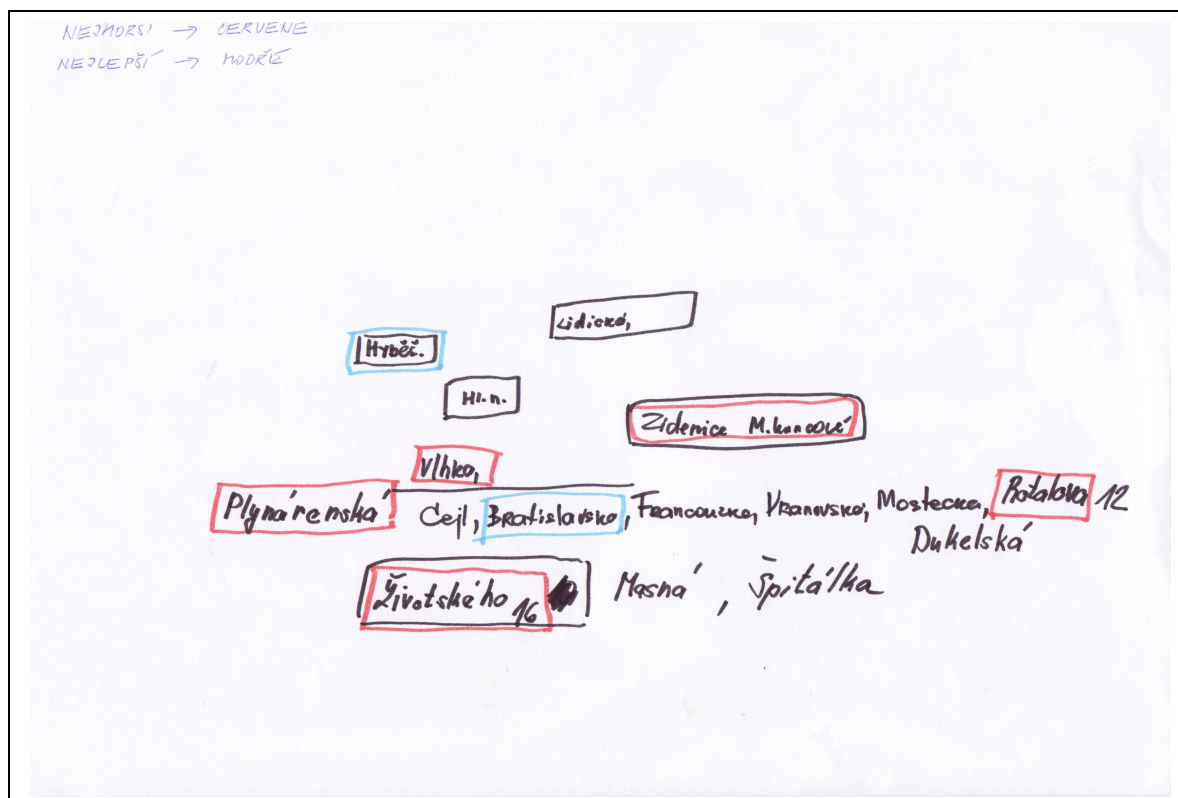 NEJHORŠÍ → ČERVENĚ
NEJLEPŠÍ → MODŘE
Lidická,
Hyběš.
Hl.n.
Židenice M.Kuncové
Vlhká,
Plynárenská! Cejl, Bratislavska, Francouzka, Vranovská, Mostecka, Rotalova 12
Dukelská
Životského 16 Masná, Špitálka